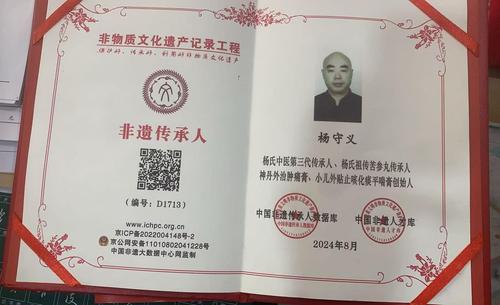 非物质文化遗产记录工程
保护好、传承好、利用好非物质文化遗产
非遗传承人
(编号:D1713)
www.ichpc.org.cn
京ICP备2022004148号-2
京公网安备11010802041228号
中国非遗大数据中心网监制
杨守义
杨氏中医第三代传承人、杨氏祖传苦参丸传承人
神丹外治肿痛膏、小儿外贴止咳化痰平喘膏创始人
中国非遗传承人数据库
中国非遗人才库
2024年8月